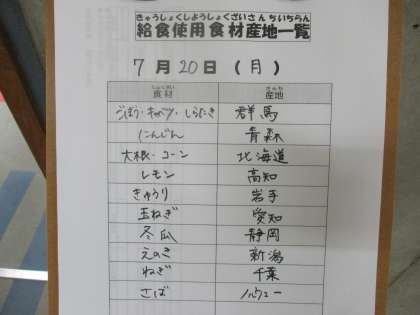 きゅうしょくしようしょくざいさんちいちらん
給食使用食材産地一覧
7月20日(月)
しょくざい さんち
食材 産地
ごぼう・キャベツ・しらたき 群馬
にんじん 青森
大根・コーン 北海道
レモン 高知
きゅうり 岩手
玉ねぎ 愛知
冬瓜 静岡
えのき 新潟
ねぎ 千葉
さば ノルウェー